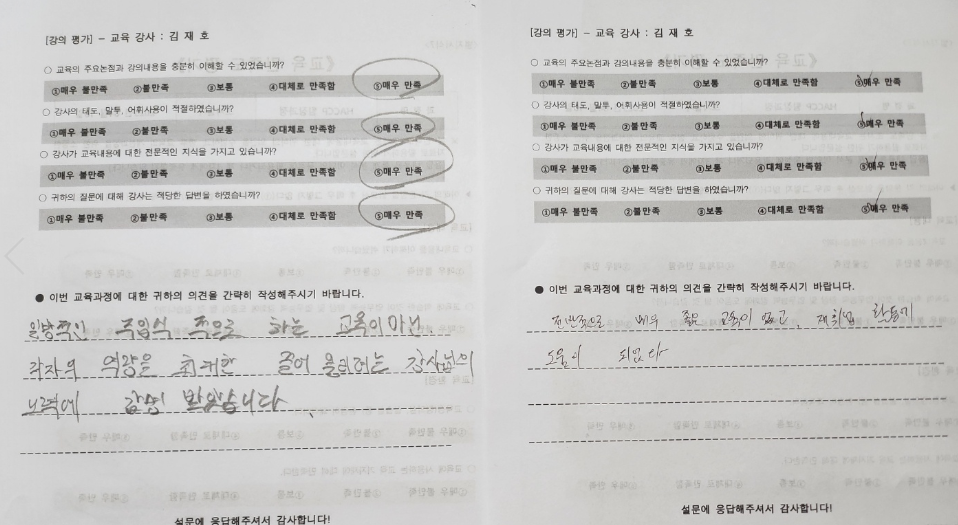 [강의 평가] – 교육 강사 : 김 재 호
○ 교육의 주요논점과 강의내용을 충분히 이해할 수 있었습니까?
①매우 불만족 ②불만족 ③보통 ④대체로 만족함 ⑤매우 만족
○ 강사의 태도, 말투, 어휘사용이 적절하였습니까?
①매우 불만족 ②불만족 ③보통 ④대체로 만족함 ⑤매우 만족
○ 강사가 교육내용에 대한 전문적인 지식을 가지고 있습니까?
①매우 불만족 ②불만족 ③보통 ④대체로 만족함 ⑤매우 만족
○ 귀하의 질문에 대해 강사는 적당한 답변을 하였습니까?
①매우 불만족 ②불만족 ③보통 ④대체로 만족함 ⑤매우 만족
● 이번 교육과정에 대한 귀하의 의견을 간략히 작성해주시기 바랍니다.
일방적인 주입식 쪽으로 하는 교육이 아닌
각자의 역량을 최대한 끌어 올리려는 강사님의
노력에 감명 받았습니다.
설문에 응답해주셔서 감사합니다!
[강의 평가] – 교육 강사 : 김 재 호
○ 교육의 주요논점과 강의내용을 충분히 이해할 수 있었습니까?
①매우 불만족 ②불만족 ③보통 ④대체로 만족함 ⑤매우 만족
○ 강사의 태도, 말투, 어휘사용이 적절하였습니까?
①매우 불만족 ②불만족 ③보통 ④대체로 만족함 ⑤매우 만족
○ 강사가 교육내용에 대한 전문적인 지식을 가지고 있습니까?
①매우 불만족 ②불만족 ③보통 ④대체로 만족함 ⑤매우 만족
○ 귀하의 질문에 대해 강사는 적당한 답변을 하였습니까?
①매우 불만족 ②불만족 ③보통 ④대체로 만족함 ⑤매우 만족
● 이번 교육과정에 대한 귀하의 의견을 간략히 작성해주시기 바랍니다.
전반적으로 매우 좋은 교육이 었고, 재취업 활동에
도움이 되었다
설문에 응답해주셔서 감사합니다!